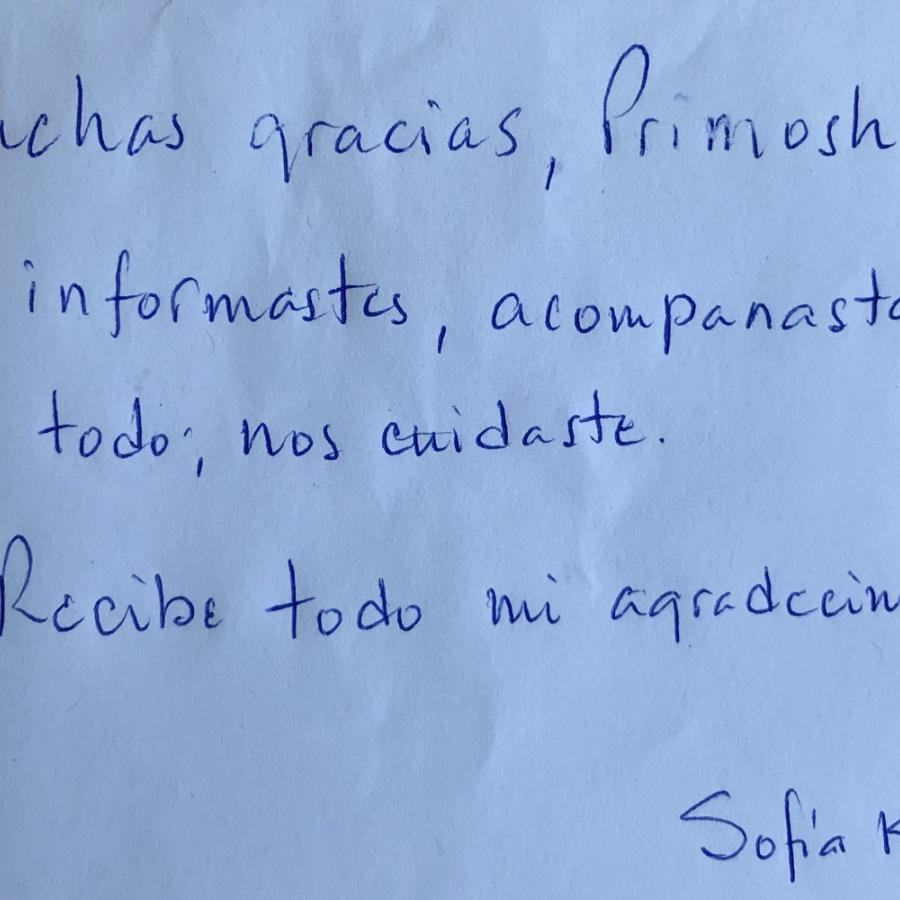 uchas gracias, Primosh
informastes, acompanaste
todo; nos cuidaste.
Recibe todo mi agradecim
Sofía K